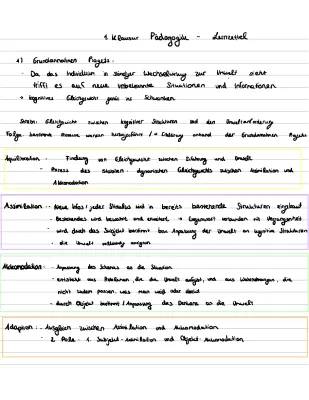 1. Klausur Pädagogik - Lernzettel
1) Grundannahmen Piagets:
- Da das Individuum in ständiger Wechselwirkung zur Umwelt steht
trifft es auf neue unbekannte Situationen und Informationen
→ kognitives Gleichgewicht gerät ins Schwanken
Streben: Gleichgewicht zwischen kognitiver Strukturen und den Umweltanforderung
Folge: bestimmte Prozesse werden / → Erklärung anhand der Grundannahmen Piagets
Äquilibration: - Findung von Gleichgewicht zwischen Erfahrung und Umwelt
- Prozess des dynamischen Gleichgewichts zwischen Assimilation und
Akkomodation
Assimilation: - Neue Infos / jeder Einfluss wird in bereits bestehende Strukturen eingebaut
- Bestehendes wird bewahrt und erweitert → Gegenwart verbunden mit Vergangenheit
- wird durch das Subjekt bestimmt bzw Anpassung der Umwelt an kognitive Strukturen
- die Umwelt
Akkomodation: - Anpassung des Schemas an die Situation
- entsteht aus Problemen, die die Umwelt aufgibt, und aus Wahrnehmungen, die
nicht
- durch Objekt bestimmt / Anpassung des Denkens an die Umwelt
Adaption: - Ausgleich zwischen Assimilation und Akkomodation
- 2 Pole: 1. Subjekt-Assimilation und Objekt-Akkomodation